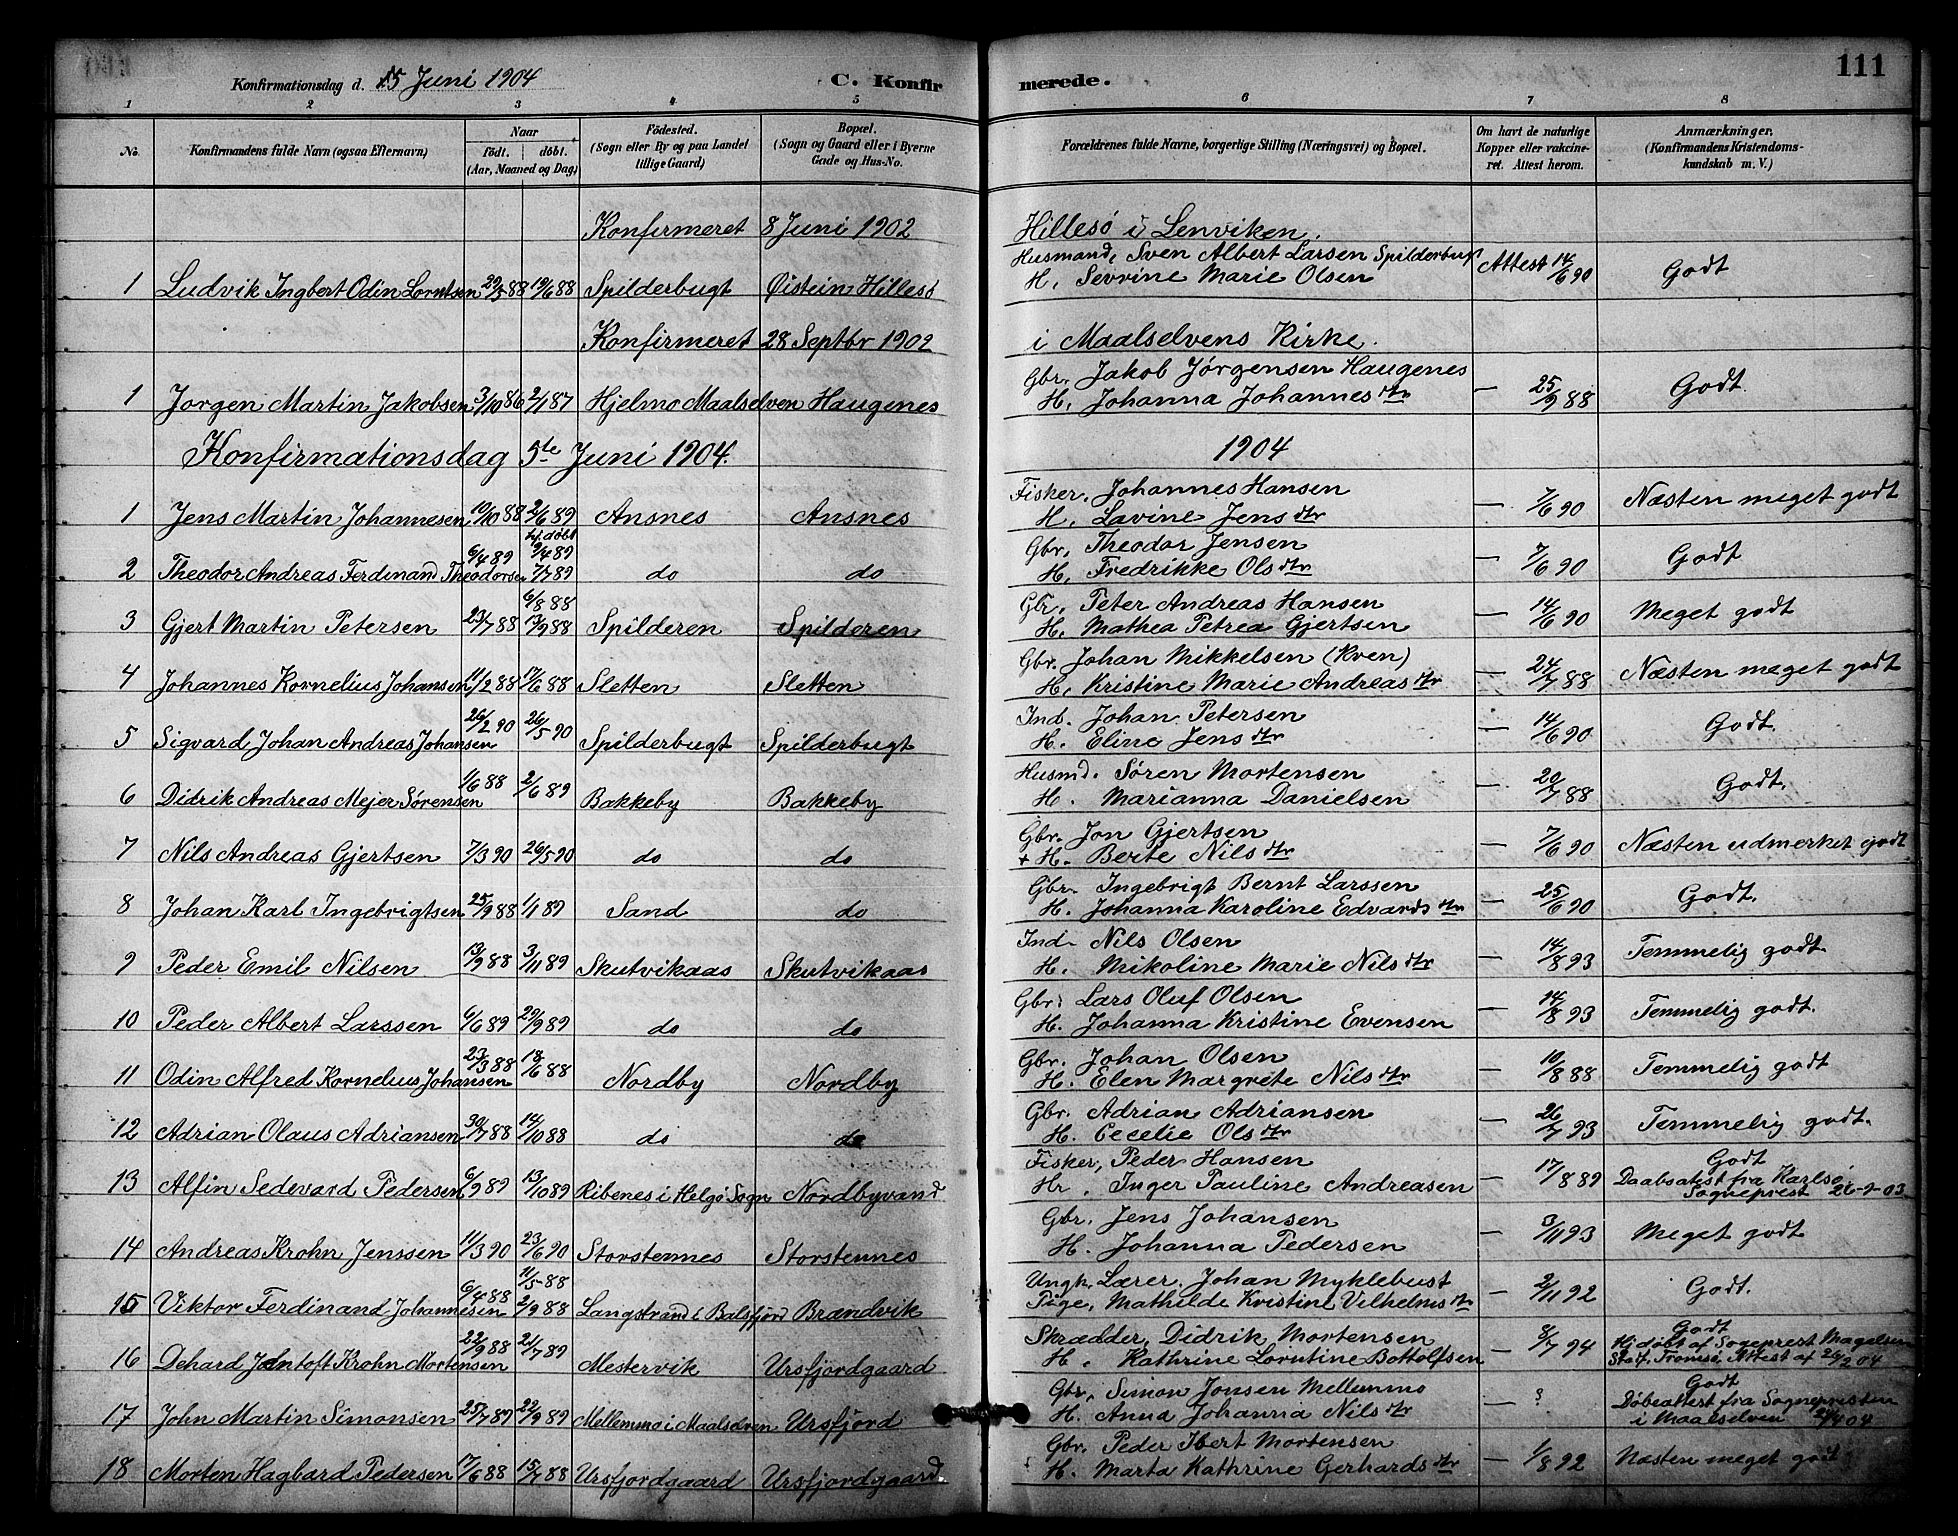 Konfirmationsdag d. 5 Juni 1904
C. Konfir
merede.
111
1 2 3 4 5 6 7 8
No. Konfirmandens fulde Navn (ogsaa Efternavn)
Naar
født. døbt.
(Aar, Maaned og Dag)
Fødested.
(Sogn eller By og paa Landet
tillige Gaard)
Bopæl.
(Sogn og Gaard eller i Byerne
Gade og Hus-No.
Forældrenes fulde Navne, borgerlige Stilling (Næringsvei) og Bopæl.
Om havt de naturlige
Kopper eller vakcine-
ret. Attest herom.
Anmærkninger.
(Konfirmandens Kristendoms-
kundskab m. V.)
Konfirmeret 8 Juni 1902 Hillesø i Lenviken.
Husmand, Sven Albert Larsen Spilderbugt
1 Ludvik Ingbert Odin Lorntsen 29/3 88 19/6 88 Spilderbugt Øistein Hillesø H. Sevrine Marie Olsen Attest 14/6 90 Godt
Konfirmeret 28 Septbr 1902 i Maalselvens Kirke.
Gbr. Jakob Jørgensen Haugenes
1 Jørgen Martin Jakobsen 3/10 86 2/1 87 Hjelmo Maalselven Haugenes H. Johanna Johannesdtr — 25/9 88 Godt.
Konfirmationsdag 5te Juni 1904. 1904
Fisker. Johannes Hansen
1 Jens Martin Johannesen 10/10 88 2/6 89 Ansnes Ansnes H. Lavine Jensdtr — 7/6 90 Næsten meget godt
hj. døbt
6/4 89 9/4 89 Gbr. Theodor Jensen
2 Theodor Andreas Ferdinand Theodorsen 7/7 89 do do H. Fredrikke Olsdtr — 7/6 90 Godt
6/8 88 Gbr. Peter Andreas Hansen
3 Gjert Martin Petersen 23/7 88 13/9 88 Spilderen Spilderen H. Mathea Petrea Gjertsen — 14/6 90 Meget godt
Gbr. Johan Mikkelsen (Kven)
4 Johannes Kornelius Johansen 11/2 88 17/6 88 Sletten Sletten H. Kristine Marie Andreasdtr — 24/7 88 Næsten meget godt
Ind. Johan Petersen
5 Sigvard Johan Andreas Johansen 26/2 90 26/5 90 Spilderbugt Spilderbugt H. Eline Jensdtr — 14/6 90 Godt.
Husmd. Søren Mortensen
6 Didrik Andreas Mejer Sørensen 1/6 88 2/6 89 Bakkeby Bakkeby H. Marianna Danielsen — 20/7 88 Godt.
Gbr. Jon Gjertsen
7 Nils Andreas Gjertsen 7/3 90 26/5 90 do do + H. Berte Nilsdtr — 7/6 90 Næsten udmerket godt
Gbr. Ingebrigt Bernt Larssen
8 Johan Karl Ingebrigtsen 25/9 88 1/1 89 Sand do H. Johanna Karoline Edvardsdtr — 25/6 90 Godt.
Ind. Nils Olsen
9 Peder Emil Nilsen 13/9 88 3/11 89 Skutvikaas Skutvikaas H. Mikoline Marie Nilsdtr — 14/8 93 Temmelig godt.
Gbr. Lars Oluf Olsen
10 Peder Albert Larssen 6/6 89 29/9 89 do do H. Johanna Kristine Evensen — 14/8 93 Temmelig godt.
Gbr. Johan Olsen
11 Odin Alfred Kornelius Johansen 23/3 88 18/6 88 Nordby Nordby H. Elen Margrete Nilsdtr — 10/8 88 Temmelig godt
Gbr. Adrian Adriansen
12 Adrian Olaus Adriansen 30/7 88 14/10 88 do do H. Cecelie Olsdtr — 26/7 93 Temmelig godt.
Fisker, Peder Hansen Godt
13 Alfin Sedevard Pedersen 6/9 89 13/10 89 Ribenes i Helgø Sogn Nordbyvand Hr. Inger Pauline Andreasen — 17/8 89 Daabsatest fra Karlsø
Sogneprest 26-9-03
Gbr. Jens Johansen
14 Andreas Krohn Jenssen 11/3 90 23/6 90 Storstennes Storstennes H. Johanna Pedersen — 3/11 93 Meget godt
6/4 88 11/5-88 Ungk. Lærer. Johan Myklebust
15 Viktor Ferdinand Johannesen 2/9 88 Langstrand i Balsfjord Brandvik Pige, Mathilde Kristine Vilhelmsdtr — 2/11 92 Godt.
Skrædder, Didrik Mortensen Godt
16 Dehard Jentoft Krohn Mortensen 22/9 88 21/7 89 Mestervik Ursfjordgaard H. Kathrine Lorntine Bottolfsen — 8/7 94 Hjdøbt af Sogneprest Magelsen
Tromsø Attest af 24/2 04
Gbr. Simon Jonsen Mellemmo Godt
17 John Martin Simonsen 25/7 89 22/9 89 Mellemmo i Maalselven Ursfjord H. Anna Johanna Nilsdtr — ? Døbeattest fra Sognepresten
i Maalselven 2/4 04
Gbr. Peder Ibert Mortensen
18 Morten Hagbard Pedersen 7/6 88 15/7 88 Ursfjordgaard Ursfjordgaard H. Marta Kathrine Gerhardsdtr — 1/8 92 Næsten meget godt